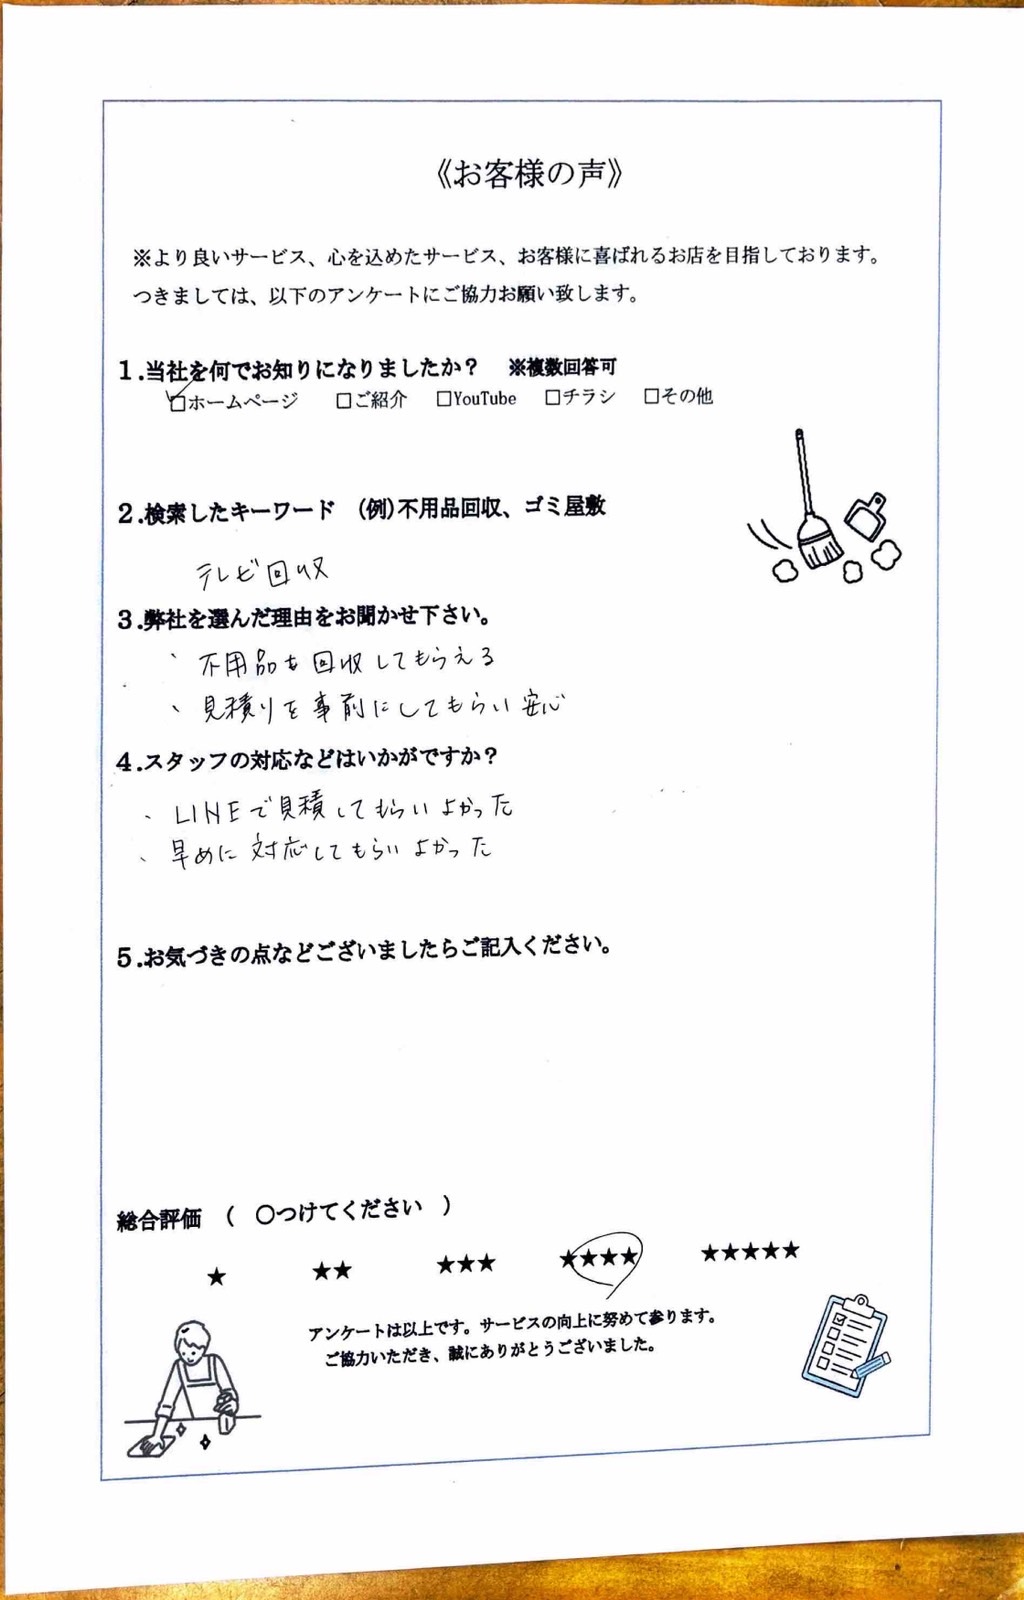 《お客様の声》
※より良いサービス、心を込めたサービス、お客様に喜ばれるお店を目指しております。
つきましては、以下のアンケートにご協力お願い致します。
1.当社を何でお知りになりましたか？　※複数回答可
☑ホームページ　□ご紹介　□YouTube　□チラシ　□その他
2.検索したキーワード　(例)不用品回収、ゴミ屋敷
テレビ回収
3.弊社を選んだ理由をお聞かせ下さい。
、不用品も回収してもらえる
、見積りを事前にしてもらい安心
4.スタッフの対応などはいかがですか？
、LINEで見積してもらいよかった
、早めに対応してもらいよかった
5.お気づきの点などございましたらご記入ください。
総合評価　(　〇つけてください　)
★　★★　★★★　★★★★　★★★★★
アンケートは以上です。サービスの向上に努めて参ります。
ご協力いただき、誠にありがとうございました。